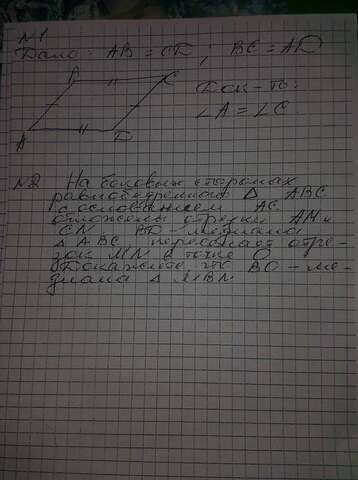 №1
Дано: AB = CD; BC = AD
B C
Док-ть:
∠A = ∠C
A D
№2 На боковых сторонах
равнобедренного Δ ABC
с основанием AC
отложены отрезки AM и
CN. BD - медиана
Δ ABC, пересекает отре-
зок MN в точке O.
Докажите, что BO - ме-
диана Δ MBN.